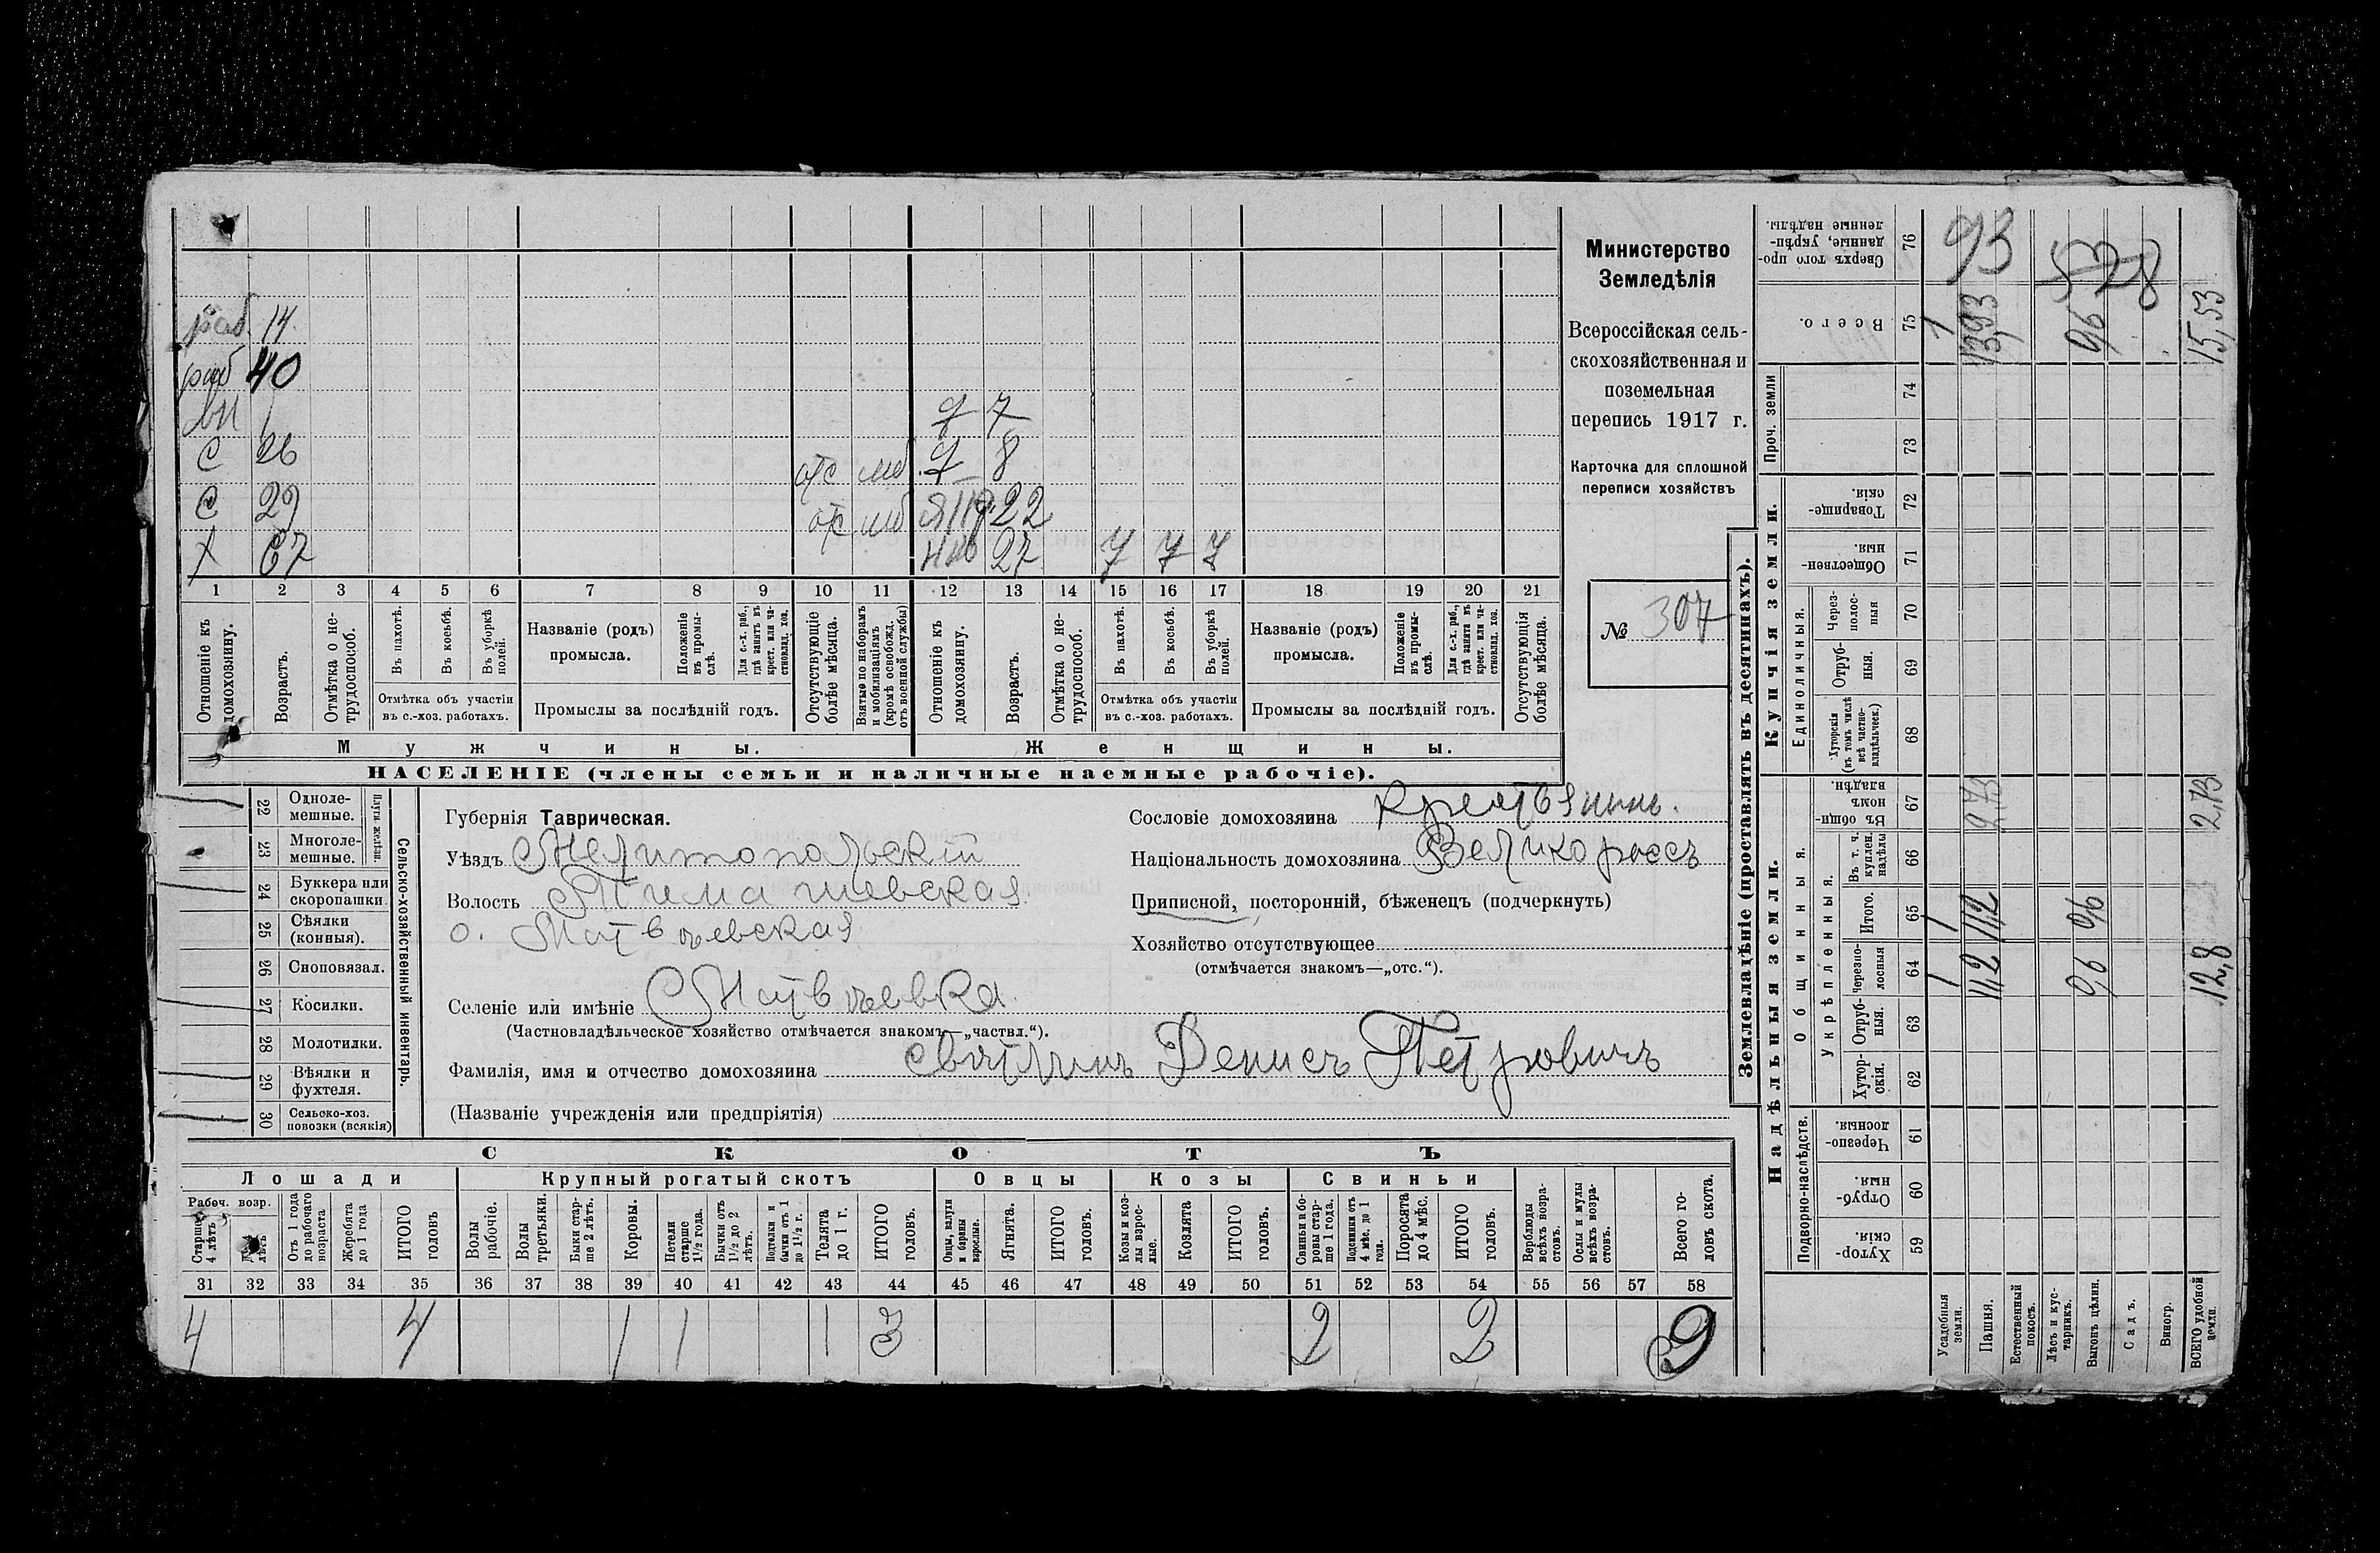 Министерство
Земледѣлія
Всероссійская сель-
скохозяйственная и
поземельная
перепись 1917 г.
Карточка для сплошной
переписи хозяйствъ
№ 307
раб. 14
раб 40
вн 1
д 7
С 26
отс мб д 8
С 29
отс мб 22
Х 67
27
1 2 3 4 5 6 7 8 9 10 11 12 13 14 15 16 17 18 19 20 21
Отношеніе къ домохозяину.
Возрастъ.
Отмѣтка о не-трудоспособ.
Въ пахотѣ.
Въ косьбѣ.
Въ уборкѣ полей.
Отмѣтка объ участіи
въ с.-хоз. работахъ.
Названіе (родъ)
промысла.
Положеніе въ промы-слѣ.
Для с.-х. раб., гдѣ занятъ въ крест. или ча-стновлад. хоз.
Промыслы за послѣдній годъ.
Отсутствующіе болѣе мѣсяца.
Взятые по наборамъ и мобилизаціямъ (кромѣ освобожд. отъ военной службы)
Отношеніе къ домохозяину.
Возрастъ.
Отмѣтка о не-трудоспособ.
Въ пахотѣ.
Въ косьбѣ.
Въ уборкѣ полей.
Отмѣтка объ участіи
въ с.-хоз. работахъ.
Названіе (родъ)
промысла.
Положеніе въ промы-слѣ.
Для с.-х. раб., гдѣ занята въ крест. или ча-стновлад. хоз.
Промыслы за послѣдній годъ.
Отсутствующія болѣе мѣсяца.
Мужчины.
Женщины.
НАСЕЛЕНІЕ (члены семьи и наличные наемные рабочіе).
Сельско-хозяйственный инвентарь.
Плуги желѣзн.
22 Одноле-мешные.
23 Многоле-мешные.
24 Буккера или скоропашки
25 Сѣялки (конныя).
26 Сноповязал.
27 Косилки.
28 Молотилки.
29 Вѣялки и фухтеля.
30 Сельско-хоз. повозки (всякія)
Губернія Таврическая.
Уѣздъ Мелитопольскій
Волость Тимашевская
о. Матвѣевская
Селеніе или имѣніе Матвѣевка.
(Частновладѣльческое хозяйство отмѣчается знакомъ—„частвл.“).
Фамилія, имя и отчество домохозяина Светлинъ Денисъ Петровичъ
(Названіе учрежденія или предпріятія)
Сословіе домохозяина Крестьянинъ.
Національность домохозяина Великороссъ
Приписной, посторонній, бѣженецъ (подчеркнуть)
Хозяйство отсутствующее
(отмѣчается знакомъ—„отс.“).
СКОТЪ
Лошади
Крупный рогатый скотъ
Овцы
Козы
Свиньи
Рабоч. возр.
Старше 4 лѣтъ
лѣтъ
Отъ 1 года до рабочаго возраста
Жеребята до 1 года
ИТОГО головъ
Волы рабочіе.
Волы третьяки.
Быки стар-ше 2 лѣтъ.
Коровы.
Нетели старше 1½ года.
Бычки отъ 1½ до 2 лѣтъ.
Подтелки и бычки отъ 1 до 1½ г.
Телята до 1 г.
ИТОГО головъ.
Овцы, валухи и бараны взрослые.
Ягнята.
ИТОГО головъ.
Козы и коз-лы взрос-лые.
Козлята
ИТОГО головъ.
Свиньи и бо-ровы стар-ше 1 года.
Подсвинки отъ 4 мѣс. до 1 года.
Поросята до 4 мѣс.
ИТОГО головъ.
Верблюды всѣхъ возра-стовъ.
Ослы и мулы всѣхъ возра-стовъ.
Всего го-ловъ скота.
31 32 33 34 35 36 37 38 39 40 41 42 43 44 45 46 47 48 49 50 51 52 53 54 55 56 57 58
4 4 1 1 1 3 2 2 9
Землевладѣніе (проставлять въ десятинахъ).
Надѣльныя земли.
Купчія земли.
Проч. земли
Подворно-наслѣдств.
Общинныя.
Укрѣпленныя.
Единоличныя.
Хутор-скія. 59
Отруб-ныя. 60
Черезпо-лосныя. 61
Хутор-скія. 62
Отруб-ныя. 63
Черезпо-лосныя 64
Итого. 65
Въ т. ч. куплен. надѣлы 66
Въ общин-номъ владѣн. 67
Хуторскія (въ томъ числѣ всѣ частно-владѣльческ.) 68
Отруб-ныя. 69
Через-полос-ныя 70
Обществен-ныя. 71
Товарище-скія. 72
73
74
Всего. 75
Сверхъ того про-данные, укрѣп-ленные надѣлы. 76
Усадебныя земли. 1 1 1
Пашня. 11,2 11,2 2,73 13,93 93
Естественный покосъ.
Лѣсъ и кус-тарникъ.
Выгонъ цѣлин. 0,6 0,6 0,6
Садъ.
Виногр.
ВСЕГО удобной земли. 12,8 2,73 15,53